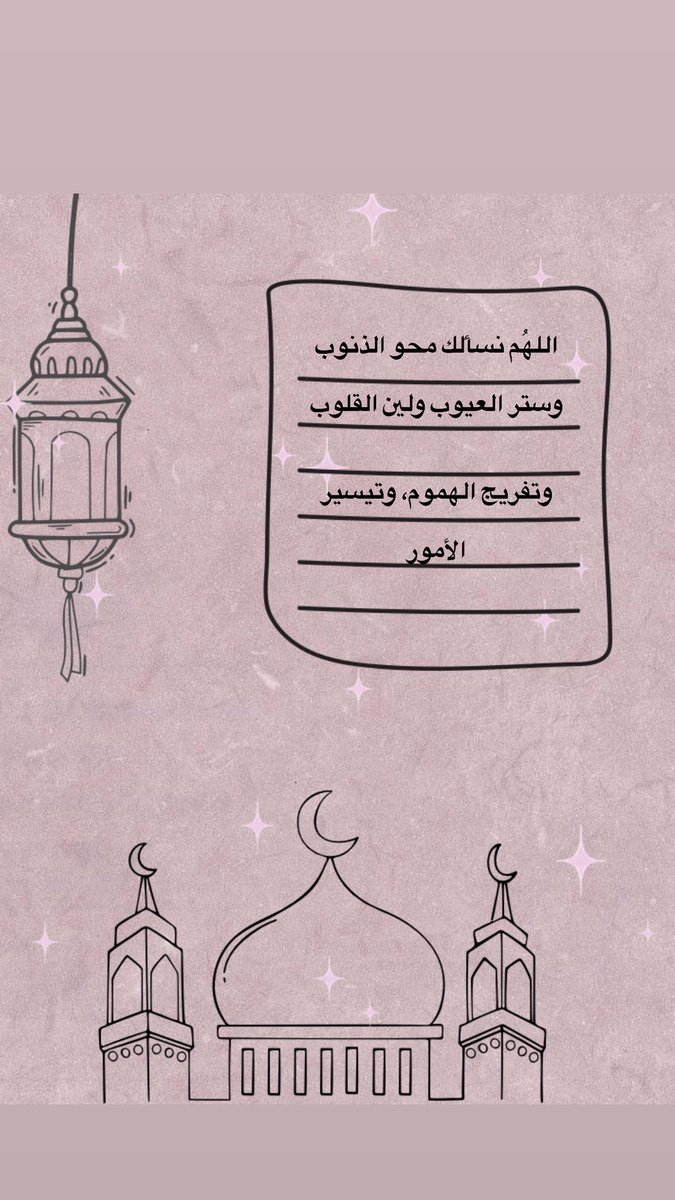 اللهُم نسألك محو الذنوب
وستر العيوب ولين القلوب
وتفريج الهموم، وتيسير
الأمور